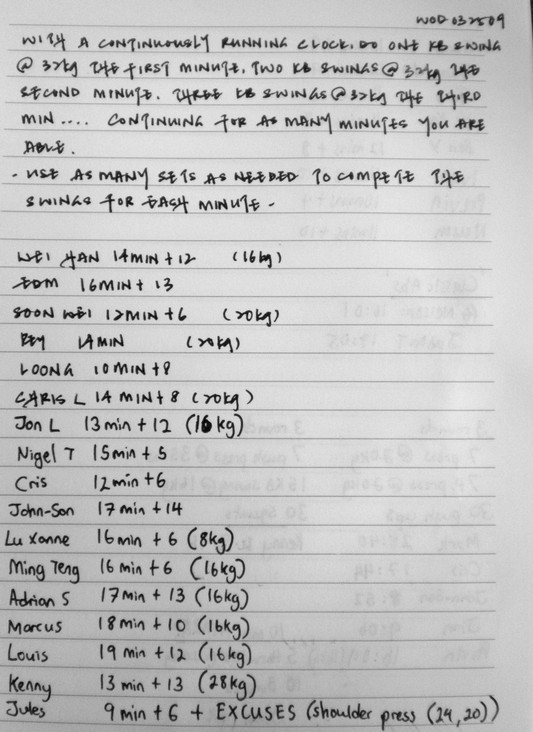 WOD 032509
WITH A CONTINUOUSLY RUNNING CLOCK, DO ONE KB SWING
@ 32kg THE FIRST MINUTE, TWO KB SWINGS @ 32kg THE
SECOND MINUTE. THREE KB SWINGS @ 32kg THE THIRD
MIN .... CONTINUING FOR AS MANY MINUTES YOU ARE
ABLE.
- USE AS MANY SETS AS NEEDED TO COMPETE THE
SWINGS FOR EACH MINUTE -
WEI HAN 14MIN + 12 (16kg)
EDM 16MIN + 13
SOON WEI 12MIN + 6 (20kg)
BEY 14MIN (20kg)
LOONG 10MIN + 8
CHRIS L 14 MINT + 8 (20kg)
Jon L 13min + 12 (16kg)
Nigel T 15min + 5
Cris 12min + 6
John-Son 17min + 14
Lu Xanne 16min + 6 (8kg)
Ming Teng 16min + 6 (16kg)
Adrian S 17min + 13 (16kg)
Marcus 18min + 10 (16kg)
Louis 19min + 12 (16kg)
Kenny 13min + 13 (28kg)
Jules 9min + 6 + EXCUSES (shoulder press (24,20))